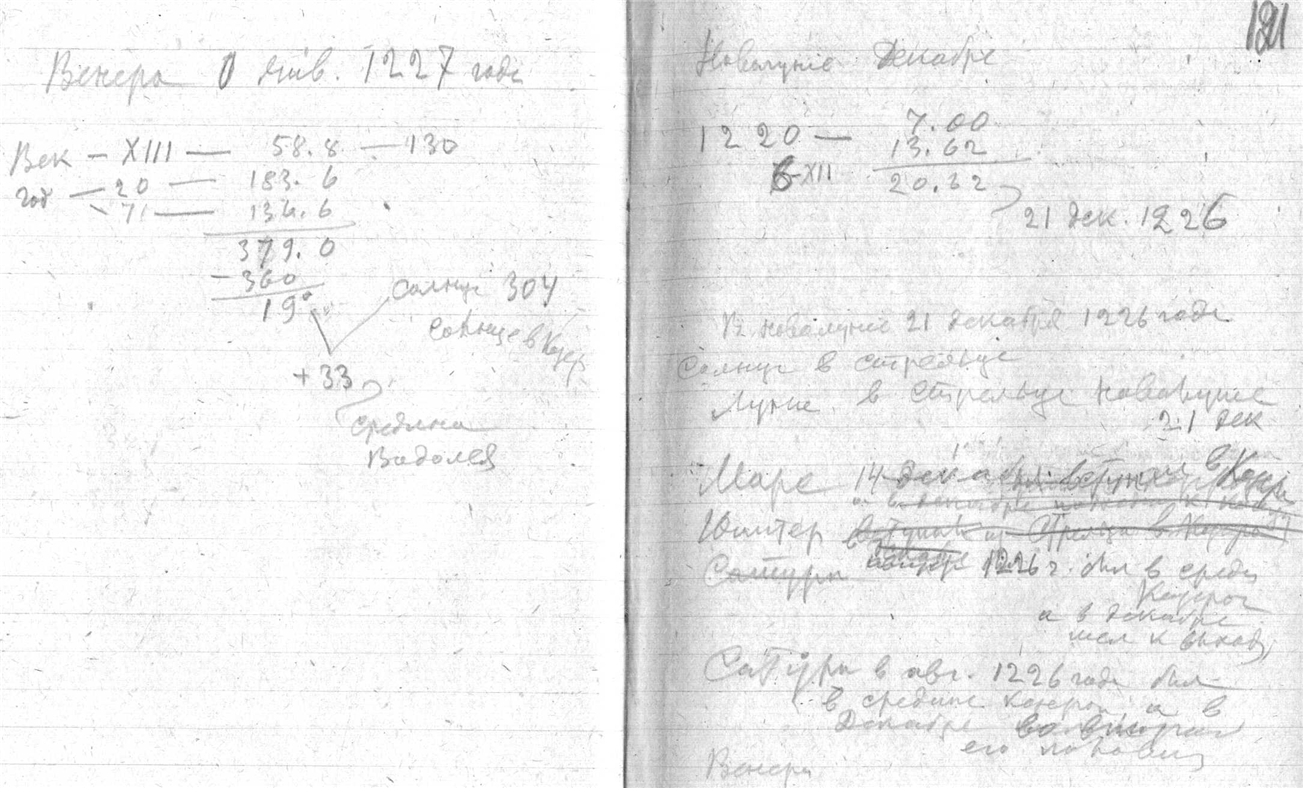 Венера 0 янв. 1227 года
Век — XIII — 58.8 — 130
год — 20 — 183.6
71 — 136.6
379.0
-360
19°
Солнце 304
Солнце в Козер
+33
средина
Водолея
121
Новолуние Декабре
1220 — 7.00
6-XII 13.62
20.62
21 дек. 1226
В новолуние 21 декабря 1226 года
Солнце в стрельце
Луние в Стрельце новолуние
21 дек
Марс 14 декабря вступил в Козер
Юпитер
Сатурн 1226 г. был в среди
Козерог
а в декабре
шел к выход
Сатурн в авг. 1226 года был
в средине козерога а в
Декабре во второй
его половин
Венера